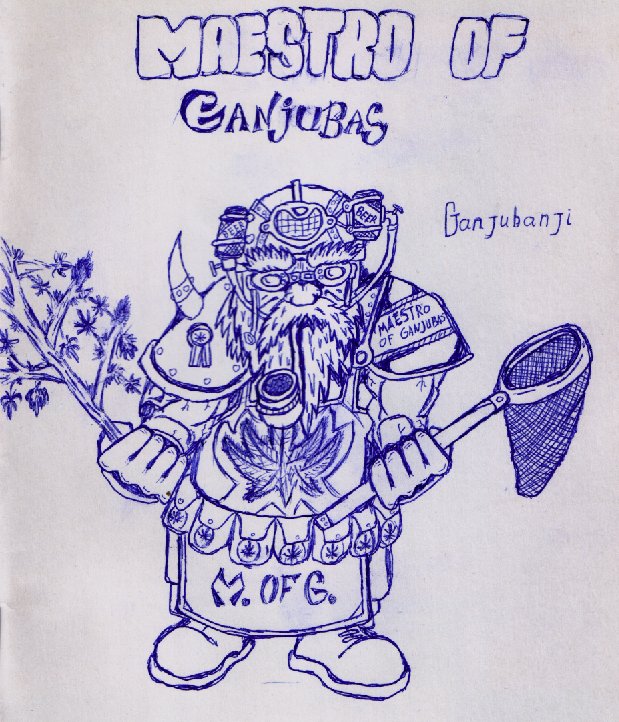 MAESTRO OF
GANJUBAS
Ganjubanji
BEER
MAESTRO
OF GANJUBAS
M. OF G.